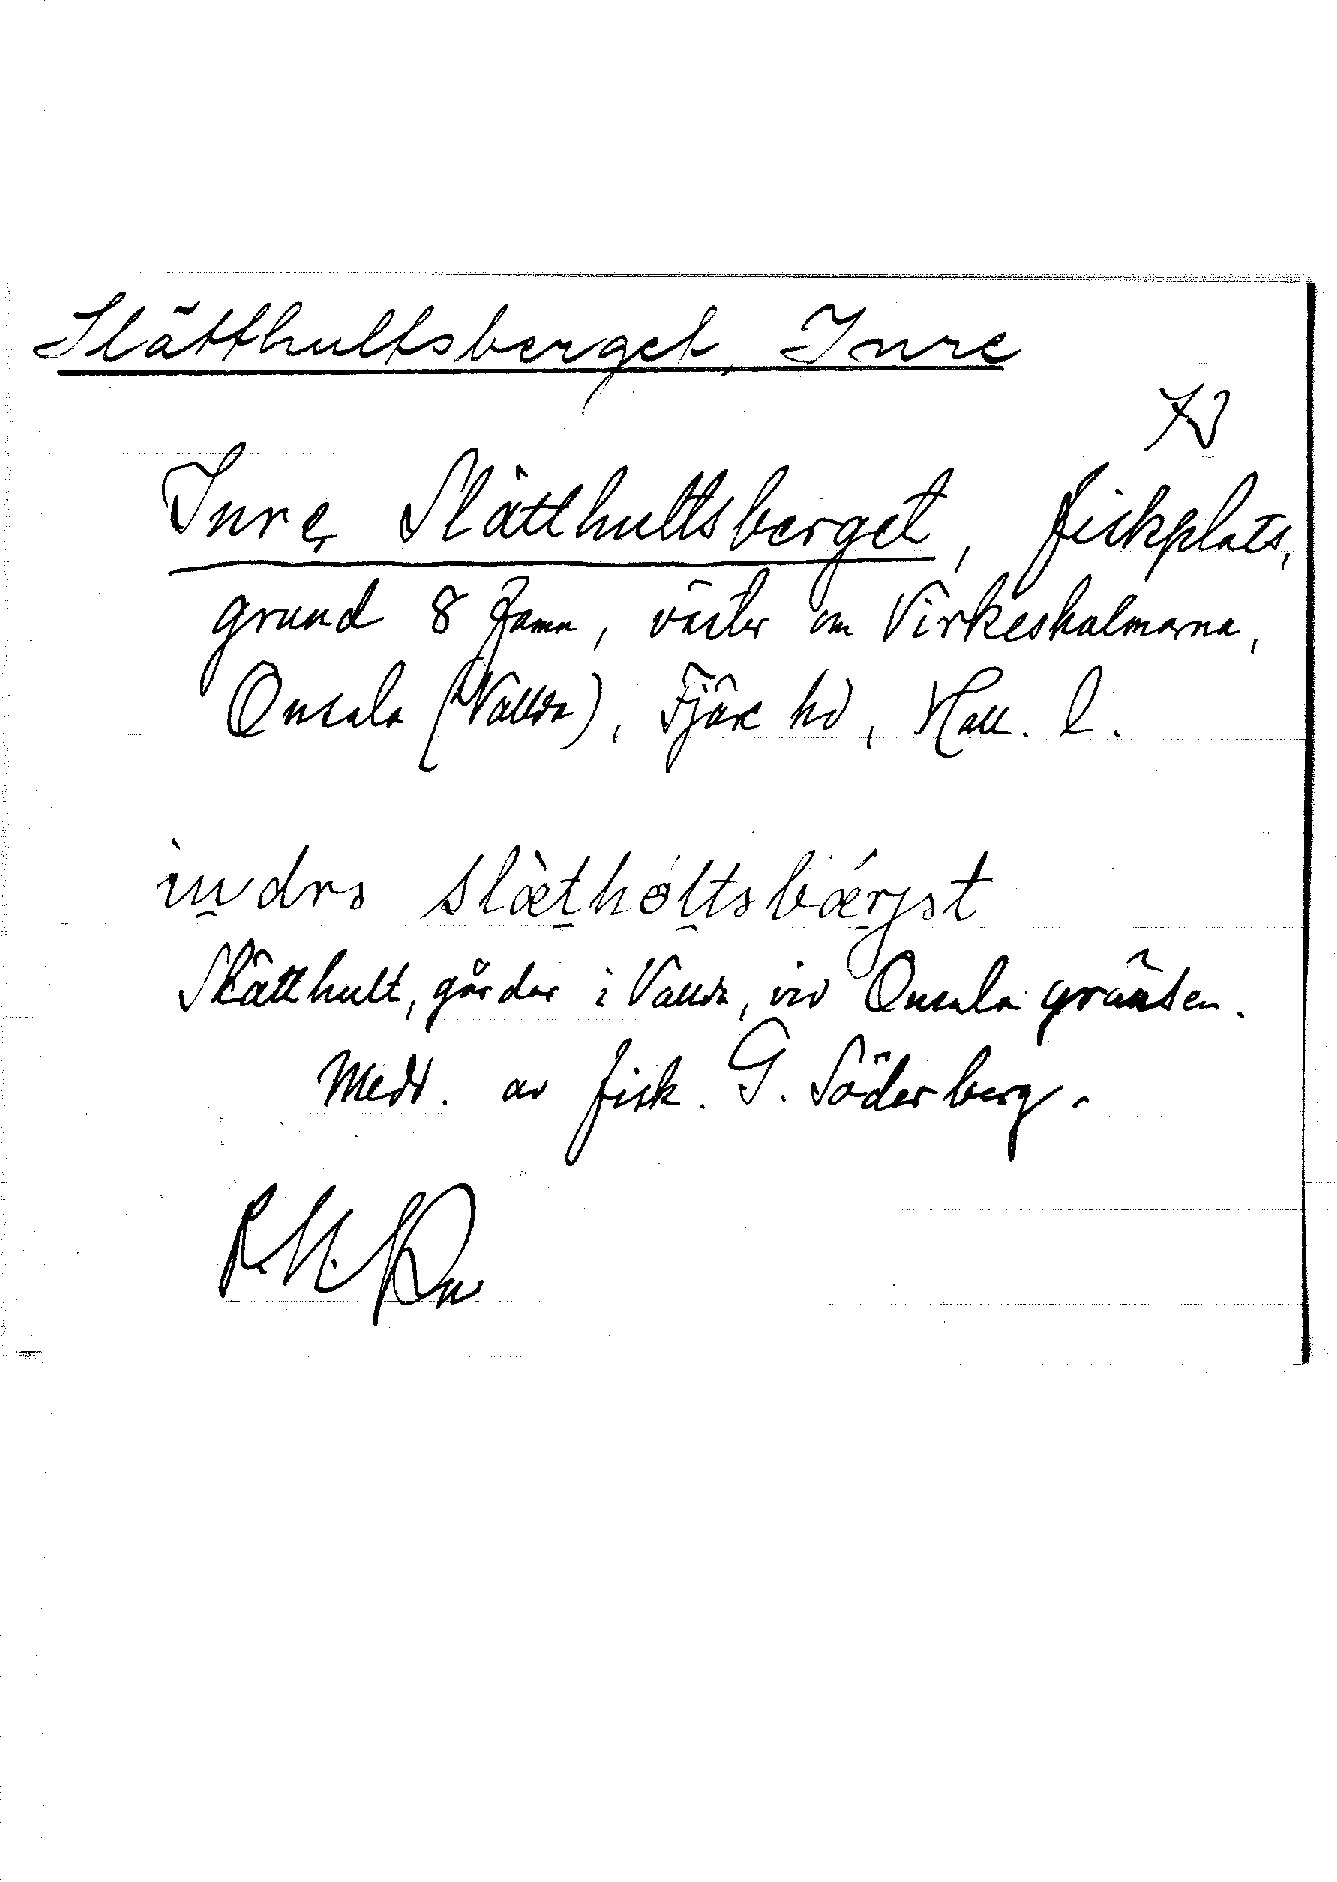 Slätthultsberget, Inre
Inre Slätthultsberget, fiskplats,
grund 8 famn, väster om Virkesholmarna,
Onsala (Vallda), Fjäre hd, Hall. l.
indrə slæthøltsbærjət
Slätthult, gårdar i Vallda, vid Onsala gränsen.
Medd. av fisk. G. Söderberg.